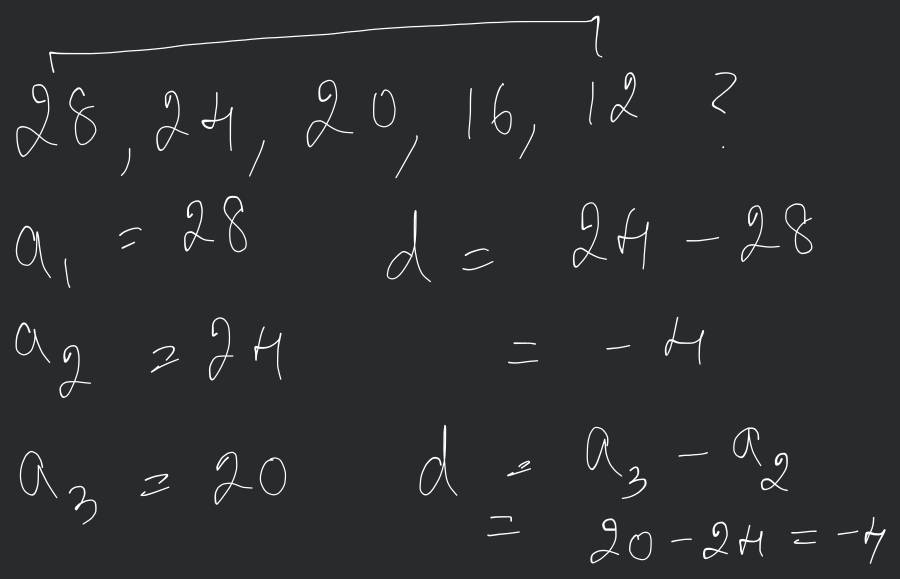 28, 24, 20, 16, 12 ?
a₁ = 28 d = 24 - 28
a₂ = 24 = - 4
a₃ = 20 d = a₃ - a₂
= 20 - 24 = -4